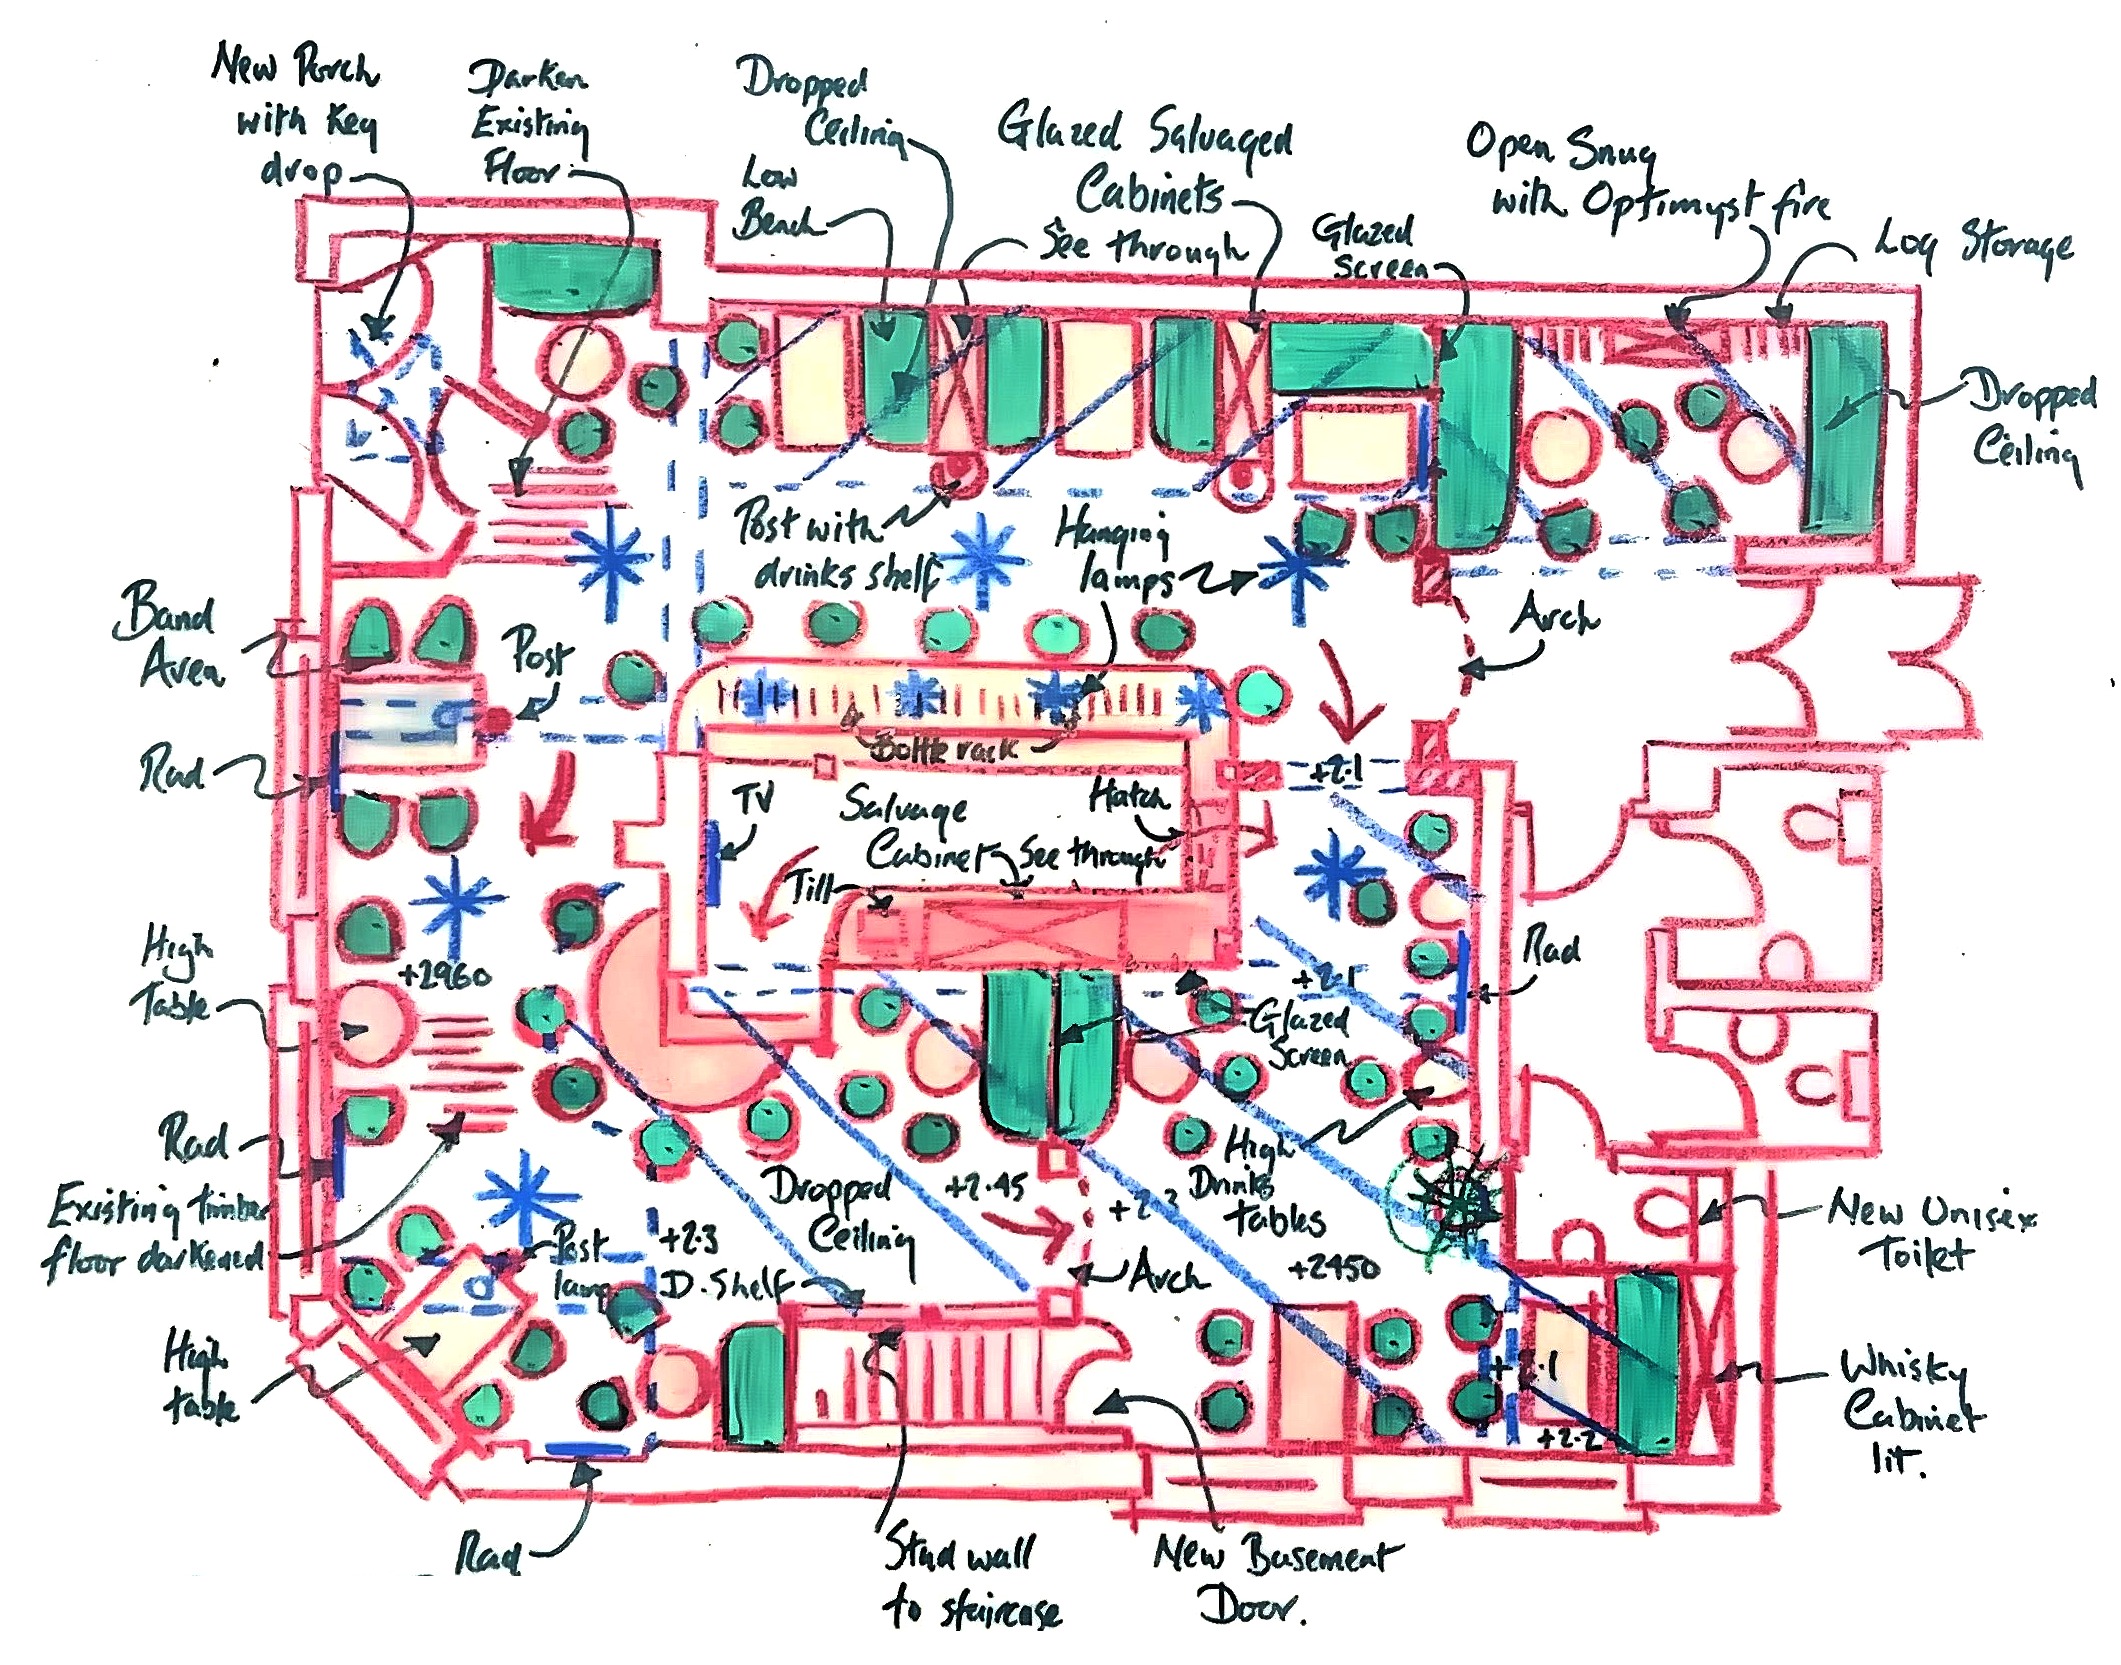 New Porch
with Key
drop
Darken
Existing
Floor
Dropped
Ceiling
Low
Bench
Glazed Salvaged
Cabinets
See through
Glazed
Screen
Open Snug
with Optimyst fire
Log Storage
Dropped
Ceiling
Post with
drinks shelf
Hanging
lamps
Arch
Band
Area
Post
Rad
Bottle rack
+2.1
TV
Salvage
Cabinet
See through
Hatch
Till
High
Table
+2960
+2.1
Rad
Glazed
Screen
Rad
Existing timber
floor darkened
High
Drinks
tables
Dropped
Ceiling
+2.45
+2.3
+2450
Post
lamp
+2.3
D. Shelf
Arch
New Unisex
Toilet
High
table
+2.1
+2.2
Whisky
Cabinet
lit.
Rad
Stud wall
to staircase
New Basement
Door.